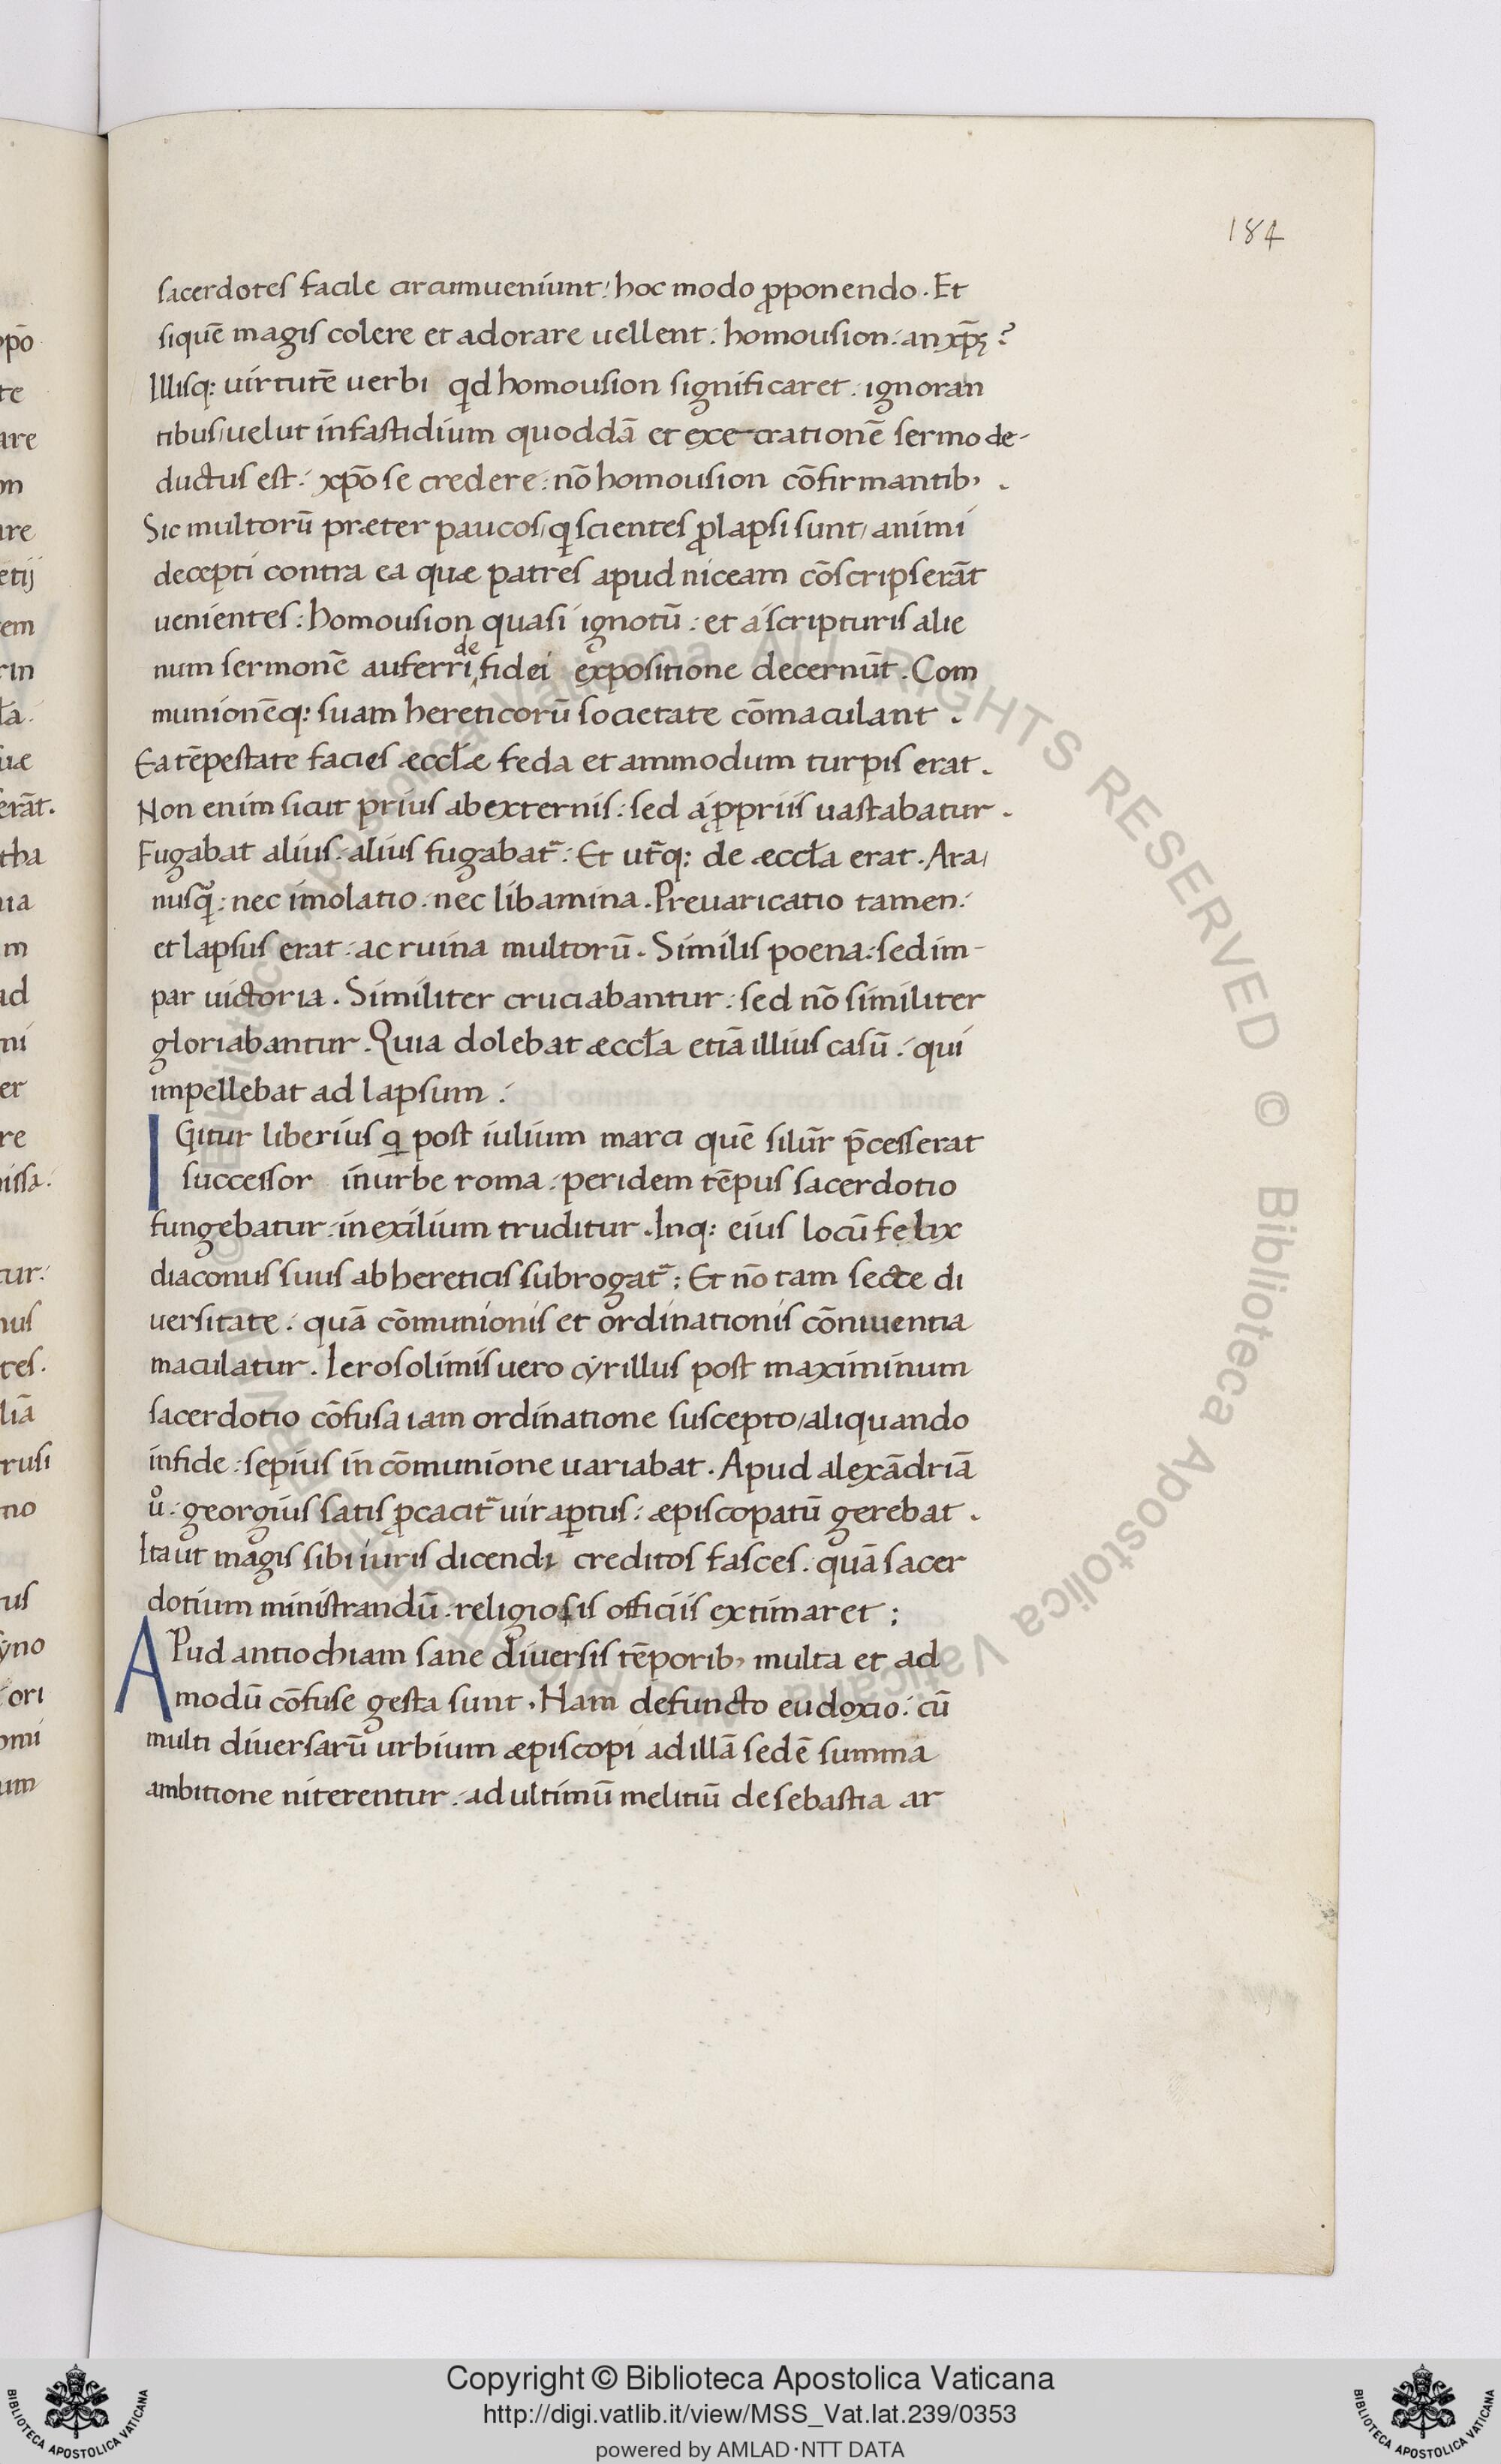 184
sacerdotes facile circumueniunt: hoc modo ꝓponendo. Et
siquē magis colere et adorare uellent: homousion: an xp̄m?
Illisq: uirtutē uerbi qd homousion significaret: ignoran
tibus, uelut in fastidium quoddā et execrationē sermo de-
ductus est: xp̄o se credere: nō homousion cōfirmantib,.
Sic multorū præter paucos, q scientes ꝓlapsi sunt, animi
decepti contra ea quæ patres apud niceam cōscripserāt
uenientes: homousion quasi ignotū: et a scripturis alie
num sermonē auferri de fidei expositione decernūt. Com
munionēq: suam hereticorū societate cōmaculant.
Ea tēpestate facies æccłæ feda et ammodum turpis erat.
Non enim sicut prius ab externis: sed a ꝓpriis uastabatur.
Fugabat alius: alius fugabat᷑: Et ut᷑q: de æccła erat. Ara
nusq̃: nec imolatio: nec libamina. Preuaricatio tamen:
et lapsus erat: ac ruina multorū. Similis poena: sed im-
par uictoria. Similiter cruciabantur: sed nō similiter
gloriabantur. Quia dolebat æccła etiā illius casū: qui
impellebat ad lapsum:
IGitur liberius q post iulium marci quē silūr p̄cesserat
successor in urbe roma: per idem tēpus sacerdotio
fungebatur: in exilium truditur. Inq: eius locū felix
diaconus suus ab hereticis subrogat᷑: Et nō tam secte di
uersitate: quā cōmunionis et ordinationis cōniuentia
maculatur. Ierosolimis uero cyrillus post maximinum
sacerdotio cōfusa iam ordinatione suscepto, aliquando
in fide: sepius in cōmunione uariabat. Apud alexādriā
uͦ: georgius satis ꝓcacit᷑ ui raptus: æpiscopatū gerebat.
Ita ut magis sibi iuris dicendi creditos fasces: quā sacer
dotium ministrandū: religiosis officiis extimaret;
APud antiochiam sane diuersis tēporib, multa et ad
modū cōfuse gesta sunt. Nam defuncto eudoxio: cū
multi diuersarū urbium æpiscopi ad illā sedē summa
ambitione niterentur: ad ultimū melitiū de sebastia ar
Copyright © Biblioteca Apostolica Vaticana
http://digi.vatlib.it/view/MSS_Vat.lat.239/0353
powered by AMLAD·NTT DATA